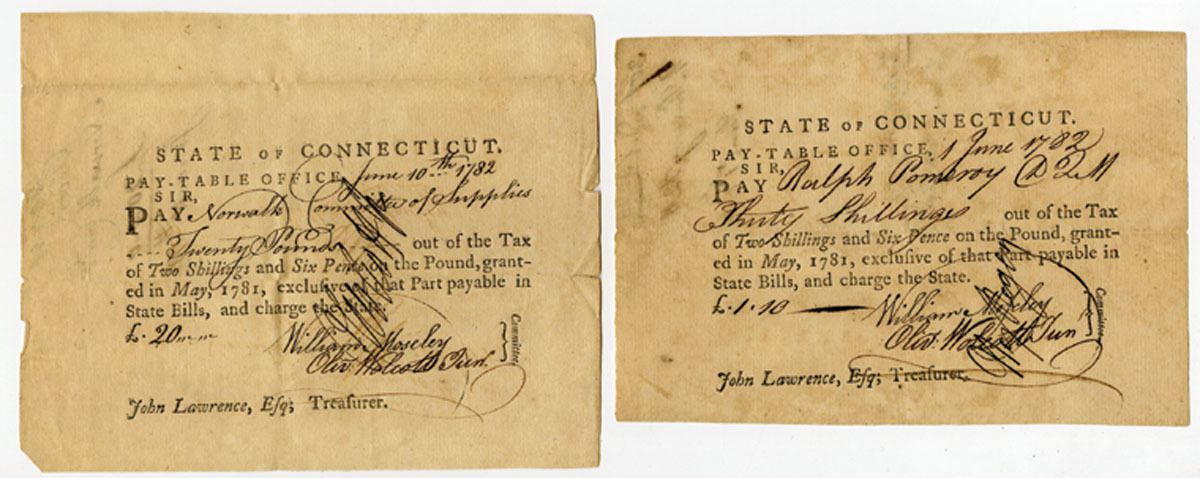 STATE OF CONNECTICUT.
PAY-TABLE OFFICE, June 10th 1782
SIR,
PAY Norwalk Committee of Supplies
Twenty Pounds out of the Tax
of Two Shillings and Six Pence on the Pound, grant-
ed in May, 1781, exclusive of that Part payable in
State Bills, and charge the State.
£. 20
William Moseley
Olivr. Wolcott Jun.
Committee
John Lawrence, Esq; Treasurer.
STATE OF CONNECTICUT.
PAY-TABLE OFFICE, 1 June 1782
SIR,
PAY Ralph Pomeroy D Q M
Thirty Shillings out of the Tax
of Two Shillings and Six Pence on the Pound, grant-
ed in May, 1781, exclusive of that Part payable in
State Bills, and charge the State.
£. 1.10
William Moseley
Olivr. Wolcott Jun
Committee
John Lawrence, Esq; Treasurer.